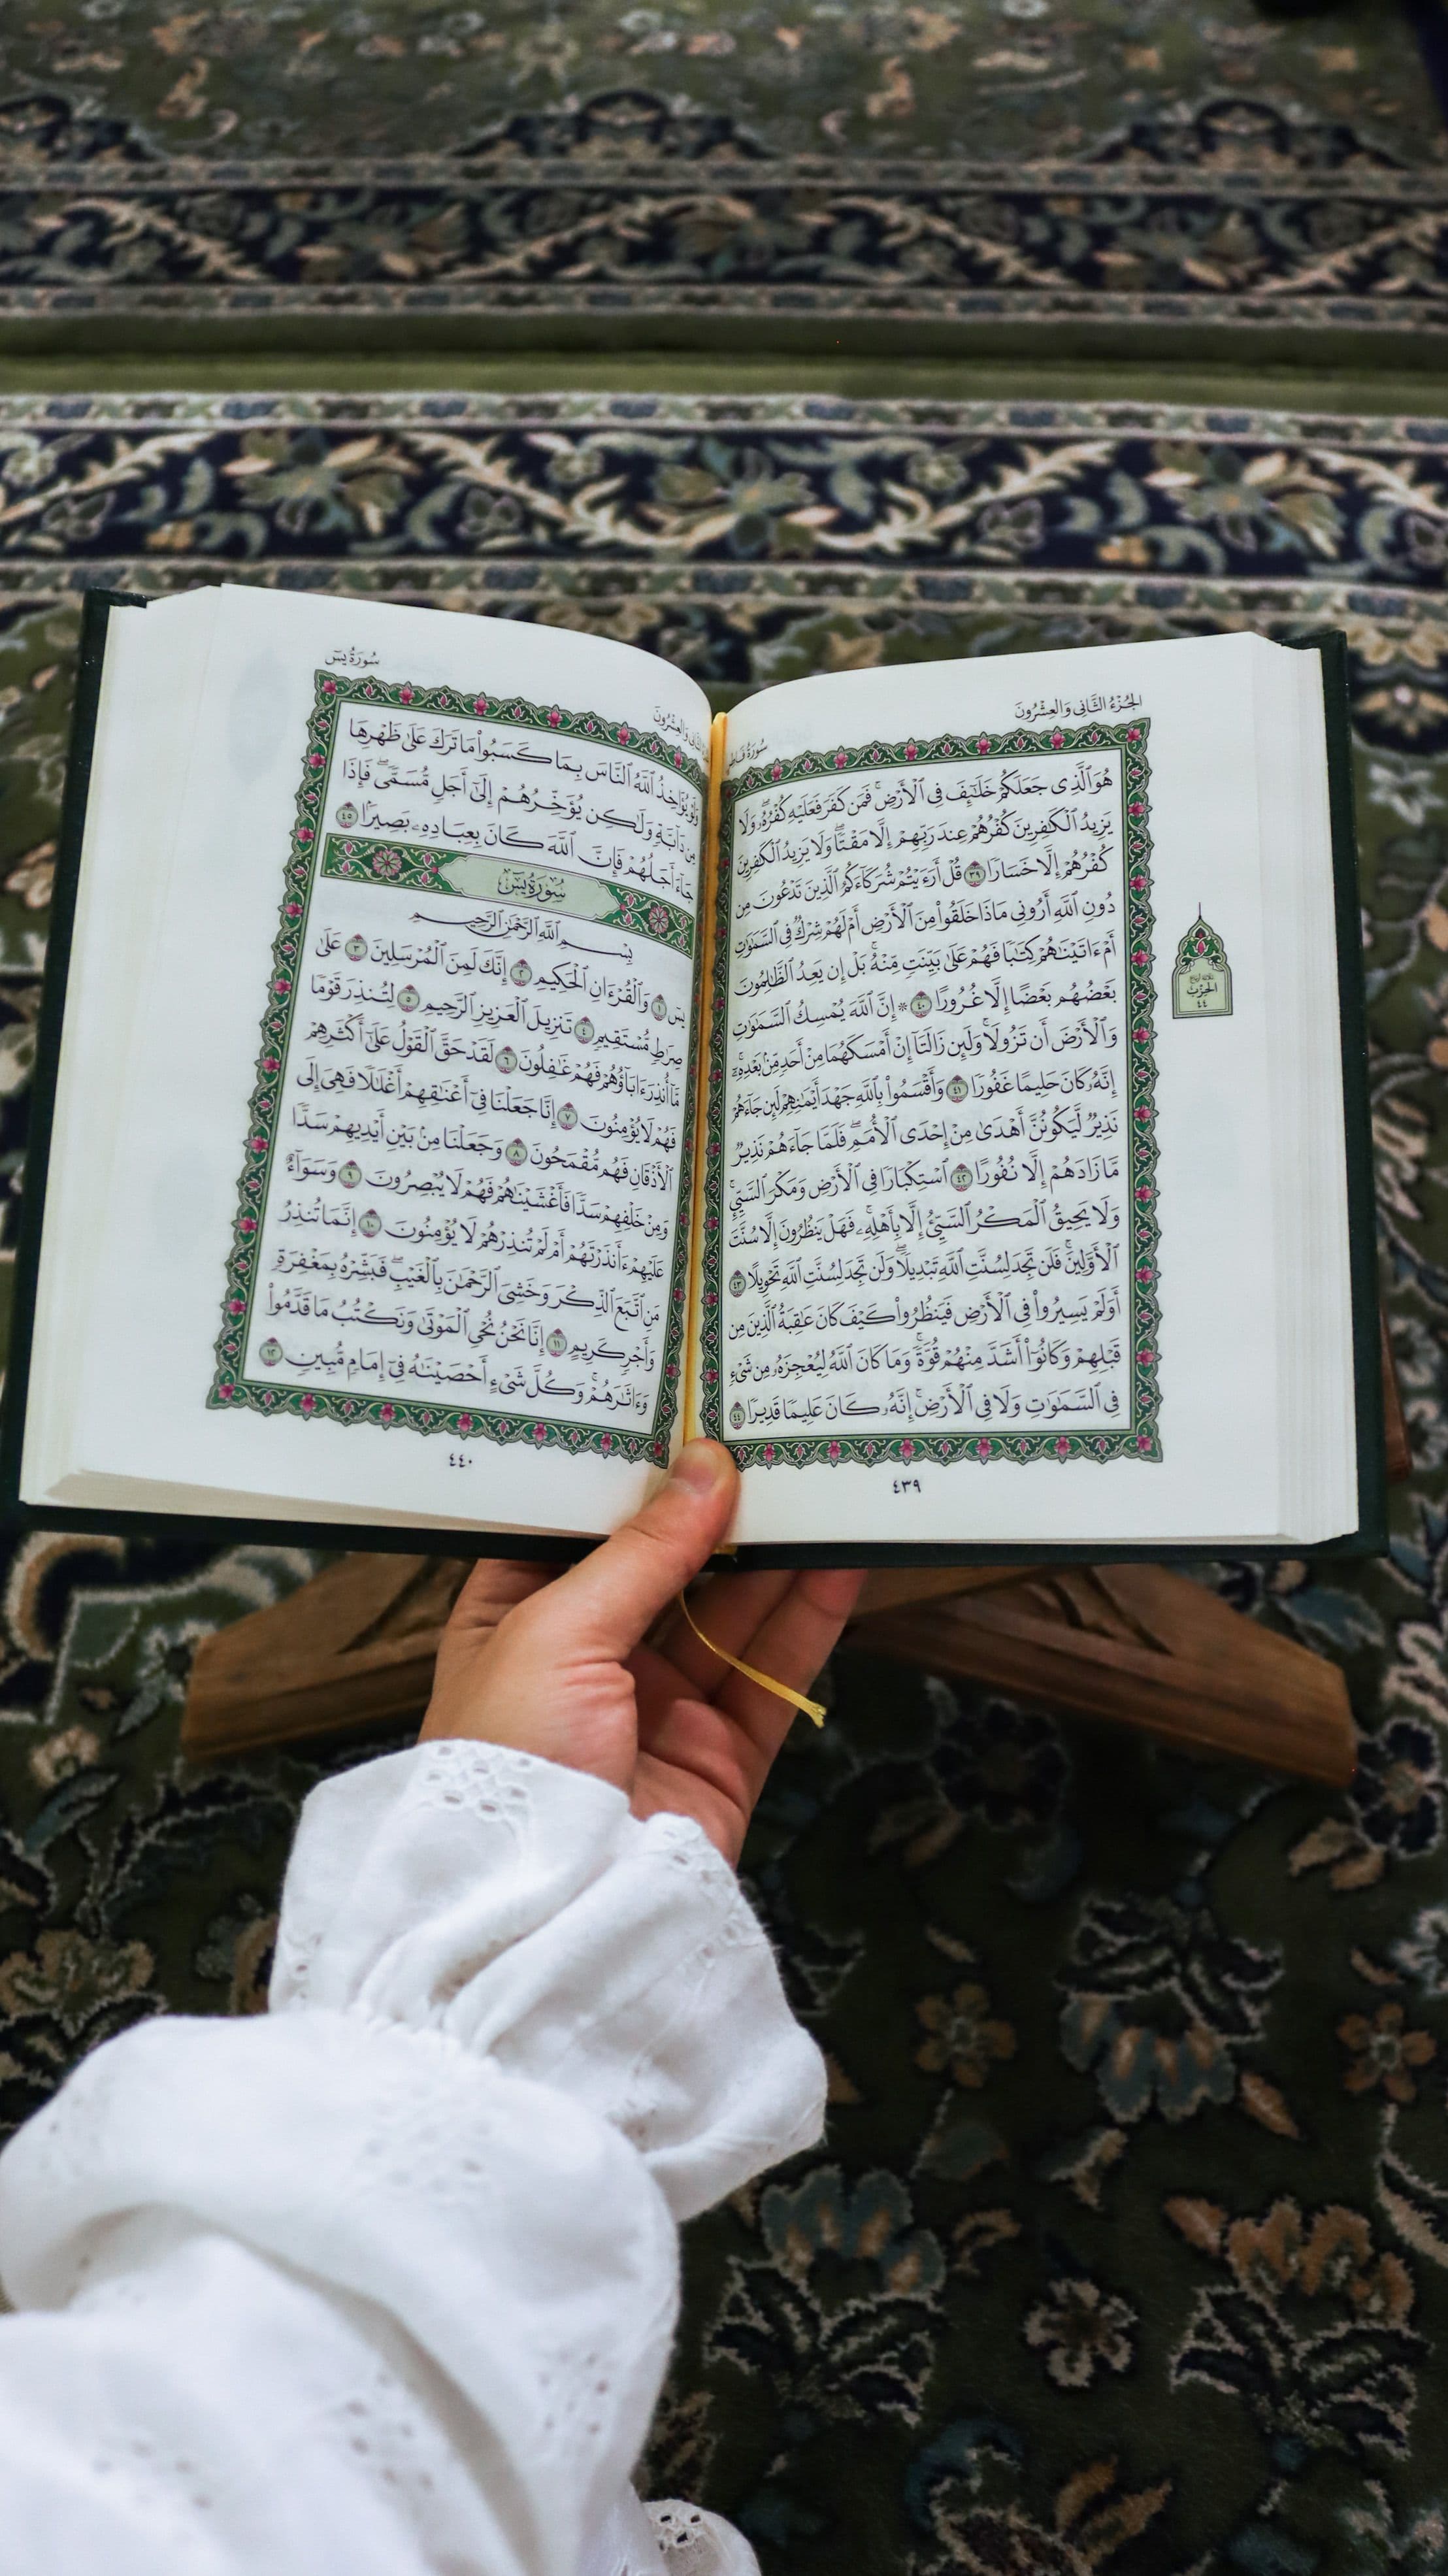 الجُزْءُ الثَّانِي وَالعِشْرُونَ
هُوَ ٱلَّذِى جَعَلَكُمْ خَلَٰٓئِفَ فِى ٱلْأَرْضِ ۚ فَمَن كَفَرَ فَعَلَيْهِ كُفْرُهُۥ ۖ وَلَا
يَزِيدُ ٱلْكَٰفِرِينَ كُفْرُهُمْ عِندَ رَبِّهِمْ إِلَّا مَقْتًا ۖ وَلَا يَزِيدُ ٱلْكَٰفِرِينَ
كُفْرُهُمْ إِلَّا خَسَارًا ٣٩ قُلْ أَرَءَيْتُمْ شُرَكَآءَكُمُ ٱلَّذِينَ تَدْعُونَ مِن
دُونِ ٱللَّهِ أَرُونِى مَاذَا خَلَقُوا۟ مِنَ ٱلْأَرْضِ أَمْ لَهُمْ شِرْكٌ فِى ٱلسَّمَٰوَٰتِ
أَمْ ءَاتَيْنَٰهُمْ كِتَٰبًا فَهُمْ عَلَىٰ بَيِّنَتٍ مِّنْهُ ۚ بَلْ إِن يَعِدُ ٱلظَّٰلِمُونَ
بَعْضُهُم بَعْضًا إِلَّا غُرُورًا ٤٠ ۞ إِنَّ ٱللَّهَ يُمْسِكُ ٱلسَّمَٰوَٰتِ
وَٱلْأَرْضَ أَن تَزُولَا ۚ وَلَئِن زَالَتَآ إِنْ أَمْسَكَهُمَا مِنْ أَحَدٍ مِّنۢ بَعْدِهِۦٓ ۚ
إِنَّهُۥ كَانَ حَلِيمًا غَفُورًا ٤١ وَأَقْسَمُوا۟ بِٱللَّهِ جَهْدَ أَيْمَٰنِهِمْ لَئِن جَآءَهُمْ
نَذِيرٌ لَّيَكُونُنَّ أَهْدَىٰ مِنْ إِحْدَى ٱلْأُمَمِ ۖ فَلَمَّا جَآءَهُمْ نَذِيرٌ
مَّا زَادَهُمْ إِلَّا نُفُورًا ٤٢ ٱسْتِكْبَارًا فِى ٱلْأَرْضِ وَمَكْرَ ٱلسَّيِّئِ ۚ
وَلَا يَحِيقُ ٱلْمَكْرُ ٱلسَّيِّئُ إِلَّا بِأَهْلِهِۦ ۚ فَهَلْ يَنظُرُونَ إِلَّا سُنَّتَ
ٱلْأَوَّلِينَ ۚ فَلَن تَجِدَ لِسُنَّتِ ٱللَّهِ تَبْدِيلًا ۖ وَلَن تَجِدَ لِسُنَّتِ ٱللَّهِ تَحْوِيلًا ٤٣
أَوَلَمْ يَسِيرُوا۟ فِى ٱلْأَرْضِ فَيَنظُرُوا۟ كَيْفَ كَانَ عَٰقِبَةُ ٱلَّذِينَ مِن
قَبْلِهِمْ وَكَانُوٓا۟ أَشَدَّ مِنْهُمْ قُوَّةً ۚ وَمَا كَانَ ٱللَّهُ لِيُعْجِزَهُۥ مِن شَىْءٍ
فِى ٱلسَّمَٰوَٰتِ وَلَا فِى ٱلْأَرْضِ ۚ إِنَّهُۥ كَانَ عَلِيمًا قَدِيرًا ٤٤
الحِزْب
٤٤
٤٣٩
سُورَةُ يسٓ
وَلَوْ يُؤَاخِذُ ٱللَّهُ ٱلنَّاسَ بِمَا كَسَبُوا۟ مَا تَرَكَ عَلَىٰ ظَهْرِهَا
مِن دَآبَّةٍ وَلَٰكِن يُؤَخِّرُهُمْ إِلَىٰٓ أَجَلٍ مُّسَمًّى ۖ فَإِذَا
جَآءَ أَجَلُهُمْ فَإِنَّ ٱللَّهَ كَانَ بِعِبَادِهِۦ بَصِيرًۢا ٤٥
سُورَةُ يسٓ
بِسْمِ ٱللَّهِ ٱلرَّحْمَٰنِ ٱلرَّحِيمِ
يسٓ ١ وَٱلْقُرْءَانِ ٱلْحَكِيمِ ٢ إِنَّكَ لَمِنَ ٱلْمُرْسَلِينَ ٣ عَلَىٰ
صِرَٰطٍ مُّسْتَقِيمٍ ٤ تَنزِيلَ ٱلْعَزِيزِ ٱلرَّحِيمِ ٥ لِتُنذِرَ قَوْمًا
مَّآ أُنذِرَ ءَابَآؤُهُمْ فَهُمْ غَٰفِلُونَ ٦ لَقَدْ حَقَّ ٱلْقَوْلُ عَلَىٰٓ أَكْثَرِهِمْ
فَهُمْ لَا يُؤْمِنُونَ ٧ إِنَّا جَعَلْنَا فِىٓ أَعْنَٰقِهِمْ أَغْلَٰلًا فَهِىَ إِلَى
ٱلْأَذْقَانِ فَهُم مُّقْمَحُونَ ٨ وَجَعَلْنَا مِنۢ بَيْنِ أَيْدِيهِمْ سَدًّا
وَمِنْ خَلْفِهِمْ سَدًّا فَأَغْشَيْنَٰهُمْ فَهُمْ لَا يُبْصِرُونَ ٩ وَسَوَآءٌ
عَلَيْهِمْ ءَأَنذَرْتَهُمْ أَمْ لَمْ تُنذِرْهُمْ لَا يُؤْمِنُونَ ١٠ إِنَّمَا تُنذِرُ
مَنِ ٱتَّبَعَ ٱلذِّكْرَ وَخَشِىَ ٱلرَّحْمَٰنَ بِٱلْغَيْبِ ۖ فَبَشِّرْهُ بِمَغْفِرَةٍ
وَأَجْرٍ كَرِيمٍ ١١ إِنَّا نَحْنُ نُحْىِ ٱلْمَوْتَىٰ وَنَكْتُبُ مَا قَدَّمُوا۟
وَءَاثَٰرَهُمْ ۚ وَكُلَّ شَىْءٍ أَحْصَيْنَٰهُ فِىٓ إِمَامٍ مُّبِينٍ ١٢
٤٤٠